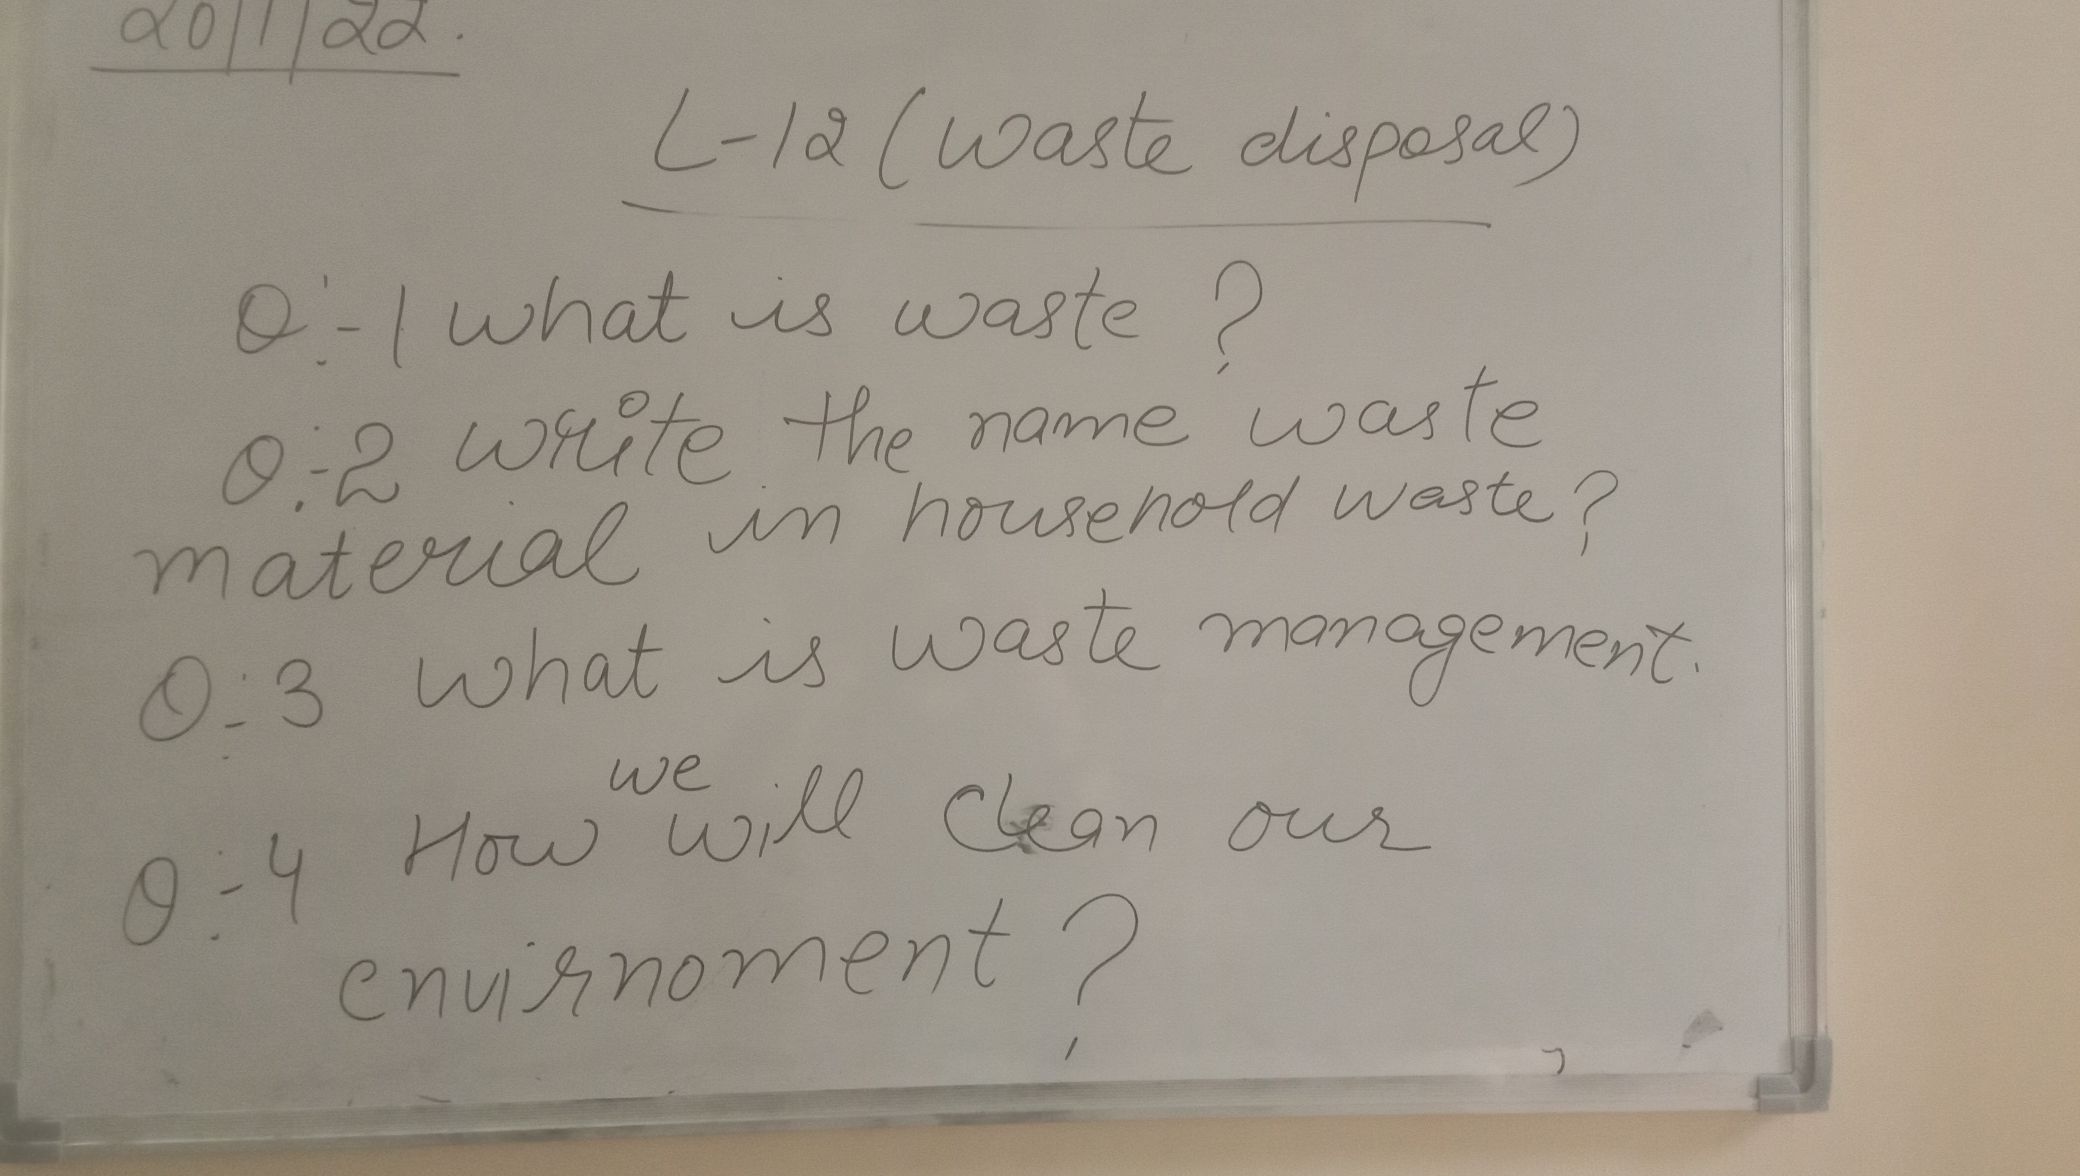 20/1/22.
L-12 (Waste disposal)
Q:-1 What is waste ?
Q:-2 write the name waste
material in household waste?
Q:-3 What is waste management.
we
Q:-4 How will clean our
envirnoment ?